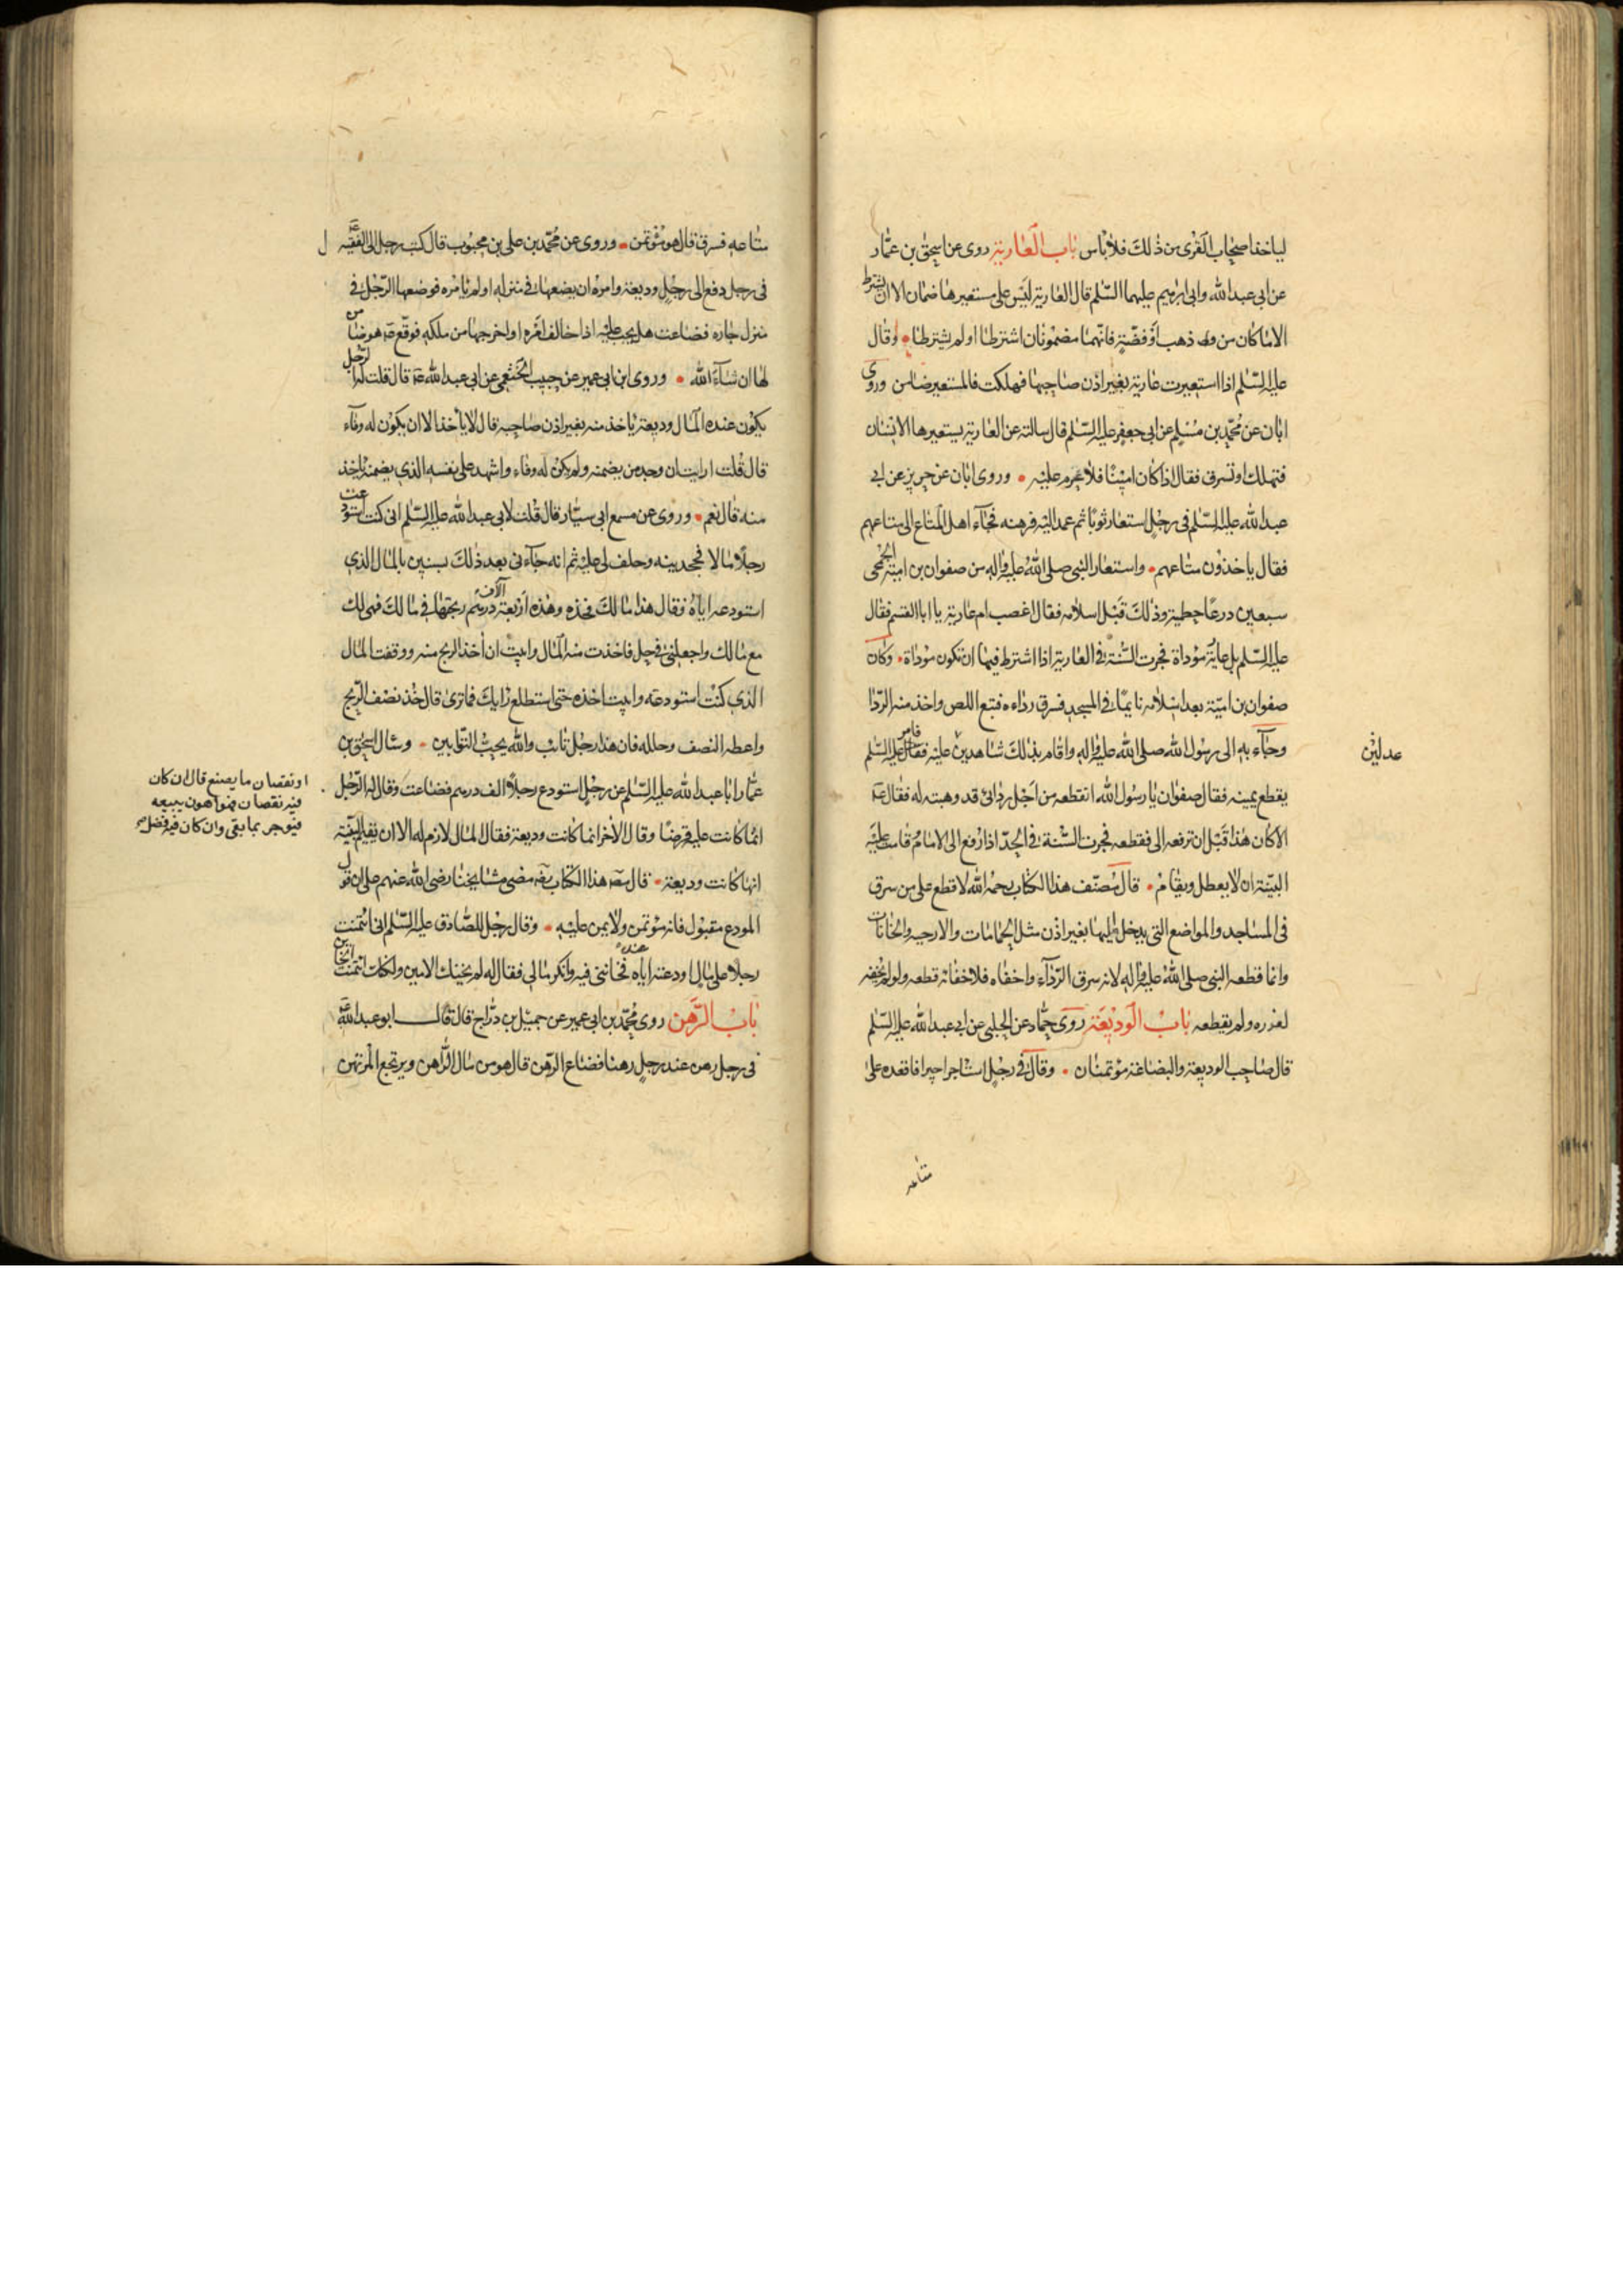 لياخذ اصحاب القرى من ذلك فلا باس باب العارية روى عن اسحق بن عمار
عن ابى عبدالله وابى ابراهيم عليهما السلم قال العارية ليس على مستعيرها ضمان الا ان يشترط
الا ما كان من ذهب او فضة فانهما مضمونان اشترطا او لم يشترطا وقال
عليه السلم اذا استعيرت عارية بغير اذن صاحبها فهلكت فالمستعير ضامن وروى
ابان عن محمد بن مسلم عن ابى جعفر عليه السلم قال سالته عن العارية يستعيرها الانسان
فتهلك او تسرق فقال اذا كان امينا فلا غرم عليه وروى ابان عن حريز عن ابى
عبدالله عليه السلم فى رجل استعار ثوبا ثم عمد اليه فرهنه فجاء اهل المتاع الى متاعهم
فقال ياخذون متاعهم واستعار النبى صلى الله عليه واله من صفوان بن امية الجمحى
سبعين درعا حطمية وذلك قبل اسلامه فقال اغصب ام عارية يا ابا القسم فقال
عليه السلم بل عارية مؤداة فجرت السنة فى العارية اذا اشترط فيها ان تكون مؤداة وكان
صفوان بن امية بعد اسلامه نايما فى المسجد فسرق رداءه فتبع اللص واخذ منه الردا
وجاء به الى رسول الله صلى الله عليه واله واقام بذلك شاهدين عليه فقال عليه السلم
فامر
عدلين
يقطع يمينه فقال صفوان يا رسول الله اتقطعه من اجل ردائى قد وهبته له فقال ع
الا كان هذا قبل ان ترفعه الى فقطعه فجرت السنة فى الحد اذا رفع الى الامام وقامت عليه
البينة ان لا يعطل ويقام قال مصنف هذا الكتاب رحمه الله لا قطع على من سرق
فى المساجد والمواضع التى يدخل اليها بغير اذن مثل الحمامات والارحيه والخانات
وانما قطعه النبى صلى الله عليه واله لانه سرق الرداء واخفاه فلاخفائه قطعه ولو لم يخفه
لعزره ولم يقطعه باب الوديعة روى حماد عن الحلبى عن ابى عبدالله عليه السلم
قال صاحب الوديعة والبضاعة مؤتمنان وقال فى رجل استاجر اجيرا فاقعده على
متاعه
متاعه فسرق قال هو مؤتمن وروى عن محمد بن على بن محبوب قال كتب رجل الى الفقيه
فى رجل دفع الى رجل وديعة وامره ان يضعها فى منزله او لم يامره فوضعها الرجل فى
منزل جاره فضاعت هل يجب عليه اذا خالف امره او اخرجها من ملكه فوقع ع هو ضامن
لها ان شاء الله وروى ابن ابى عمير عن حبيب الخثعمى عن ابى عبدالله ع قال قلت له الرجل
يكون عنده المال وديعة ياخذ منه بغير اذن صاحبه قال لا ياخذ الا ان يكون له وفاء
قال قلت ارايت ان وجد من يضمنه ولم يكن له وفاء واشهد على نفسه الذى يضمنه ياخذ
منه قال نعم وروى عن مسمع ابى سيار قال قلت لابى عبدالله عليه السلم انى كنت استودعت
رجلا مالا فجحدينه وحلف لى عليه ثم انه جاءنى بعد ذلك بسنين بالمال الذى
استودعه اياه فقال هذا مالك فخذه وهذه اربعة آلاف درهم ربحتها فى مالك فهى لك
مع مالك واجعلنى فى حل فاخذت منه المال وابيت ان اخذ الربح منه ووقفت المال
الذى كنت استودعته وابيت اخذه حتى استطلع رايك فما ترى قال خذ نصف الربح
واعطه النصف وحلله فان هذا رجل تائب والله يحب التوابين وسال اسحق بن
عمار ابا عبدالله عليه السلم عن رجل استودع رجلا الف درهم فضاعت وقال له الرجل
انما كانت عليه قرضا وقال الاخر انما كانت وديعة فقال المال لازم له الا ان يقيم البينة
انها كانت وديعة قال مص هذا الكتاب مضى مشايخنا رضى الله عنهم على ان قول
المودع مقبول فانه مؤتمن ولا يمين عليه وقال رجل للصادق عليه السلم انى ائتمنت
رجلا على مال اودعته اياه عنده فخاننى فيه وانكر مالى فقال له لم يخنك الامين ولكنك ائتمنت الخاين
باب الرهن روى محمد بن ابى عمير عن جميل بن دراج قال قال ابو عبدالله
فى رجل رهن عند رجل رهنا فضاع الرهن قال هو من مال الراهن ويرتجع المرتهن
او نقصان ما يصنع قال ان كان
فيه نقصان فهو اهون يبيعه
فيوجر بما بقى وان كان فيه فضل